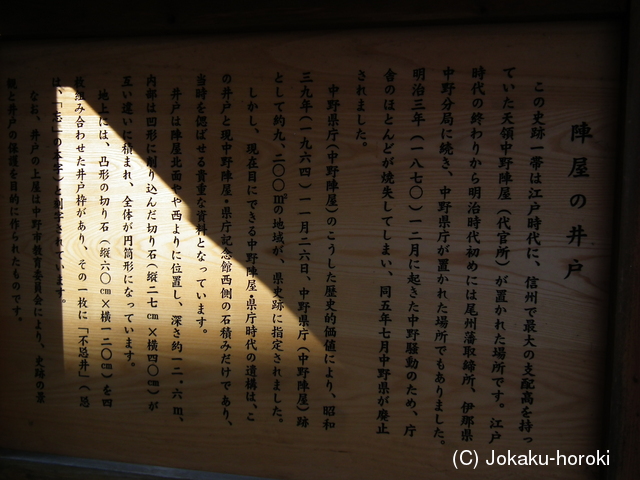 陣屋の井戸
この史跡一帯は江戸時代に、信州で最大の支配高を持っ
ていた天領中野陣屋(代官所)が置かれた場所です。江戸
時代の終わりから明治時代初めには尾州藩取締所、伊那県
中野分局に続き、中野県庁が置かれた場所でもありました。
明治三年(一八七〇)一二月に起きた中野騒動のため、庁
舎のほとんどが焼失してしまい、同五年七月中野県が廃止
されました。
中野県庁(中野陣屋)のこうした歴史的価値により、昭和
三九年(一九六四)一一月二六日、中野県庁(中野陣屋)跡
として約九、二〇〇㎡の地域が、県史跡に指定されました。
しかし、現在目にできる中野陣屋・県庁時代の遺構は、こ
の井戸と現中野陣屋・県庁記念館西側の石積みだけであり、
当時を偲ばせる貴重な資料となっています。
井戸は陣屋北面やや西よりに位置し、深さ約一二.六m、
内部は凹形に削り込んだ切り石(縦二七㎝×横四〇㎝)が
互い違いに積まれ、全体が円筒形になっています。
地上には、凸形の切り石(縦六〇㎝×横一二〇㎝)を四
枚組み合わせた井戸枠があり、その一枚に「不忘井」(忘
は、「忘」の本字)と刻字されています。
なお、井戸の上屋は中野市教育委員会により、史跡の景
観と井戸の保護を目的に作られたものです。
(C) Jokaku-horoki